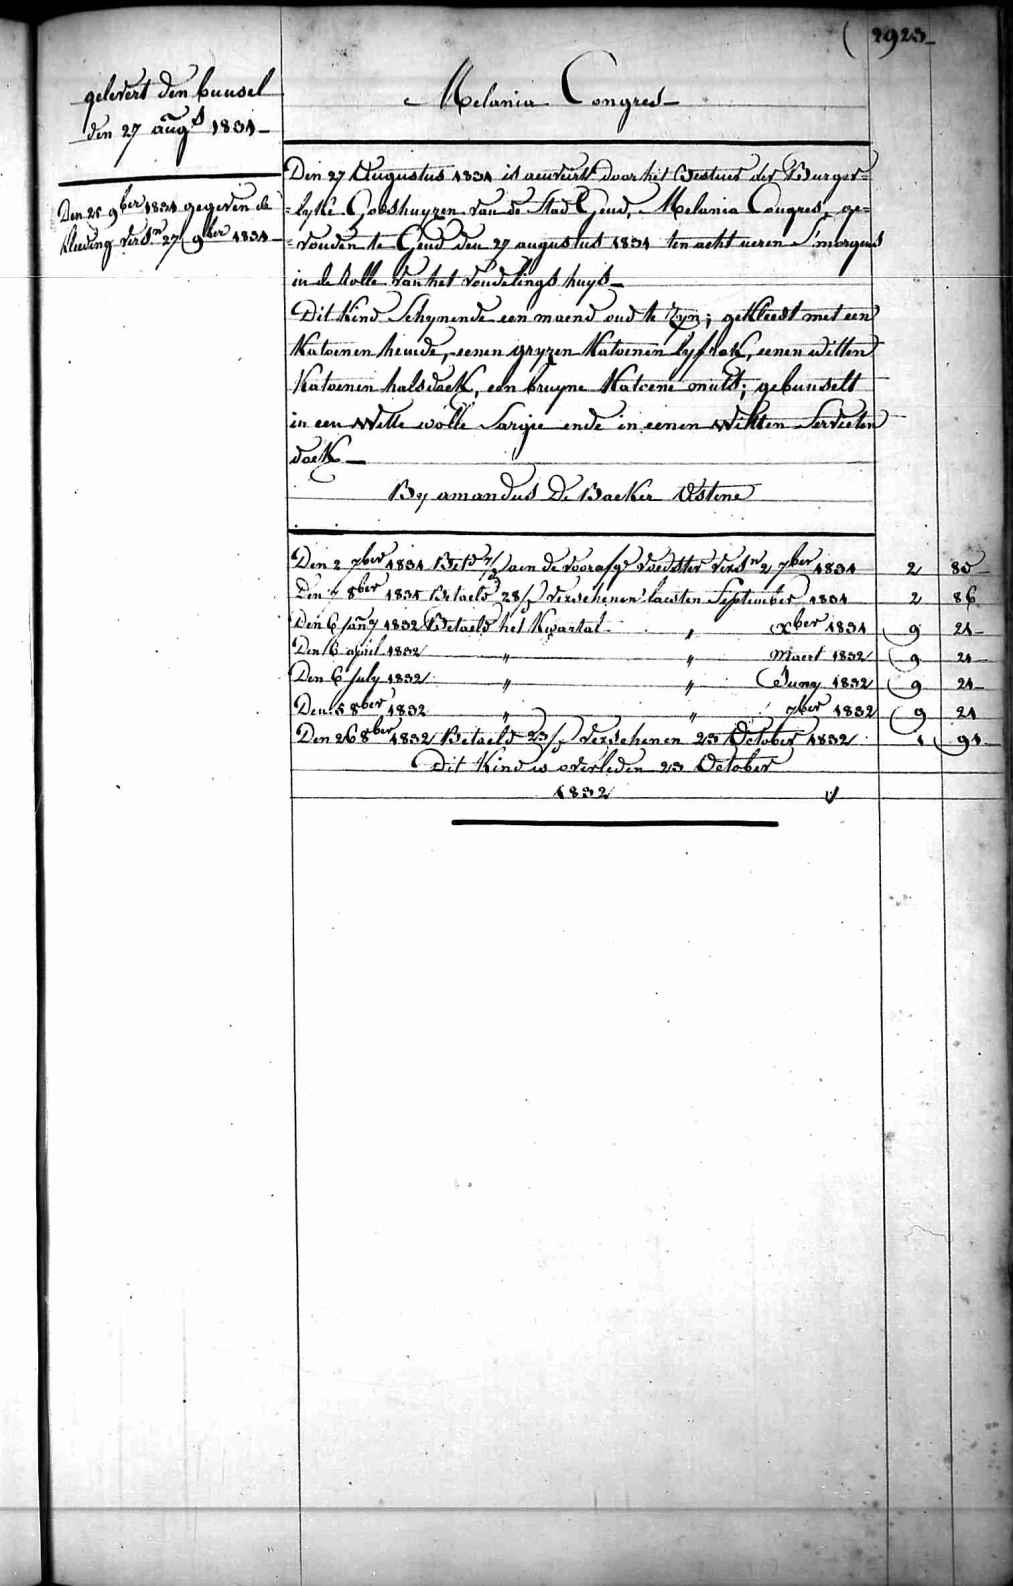 2923
gelevert den bunsel
den 27 augs 1831
Den 25 9ber 1831 gegeven de
kleeding versn 27 9ber 1831
Melania Congres
Den 27 Augustus 1831 is aenveert door het Bestuer der Burger=
=lyke Godshuyzen van de Stad Gend, Melania Congres, ge=
=vonden te Gend den 27 augustus 1831 ten acht ueren s'morgens
in de rolle van het vondelings huys
Dit kind schynende een maend oud te zyn; gekleedt met een
katoenen hemde, eenen gryzen katoenen lyfrok, eenen witten
katoenen halsdoek, een bruyne katoene muts; gebunselt
in een witte wolle sargie ende in eenen witten servietten
doek
By amandus De Backer Ostene
Den 2 7ber 1831 Betd aen de voorafge voedster versn 2 7ber 1831 2 80
Den 8ber 1831 Betaeld 28/ verschenen laesten September 1831 2 86
Den 6 Jany 1832 Betaeld het kwartal " xber 1831 9 21
Den 6 april 1832 " " Maert 1832 9 21
Den 6 July 1832 " " Juny 1832 9 21
Den 5 8ber 1832 " " 7ber 1832 9 21
Den 26 8ber 1832 Betaeld 23/ verschenen 23 October 1832 1 91
Dit kind is overleden 23 October
1832